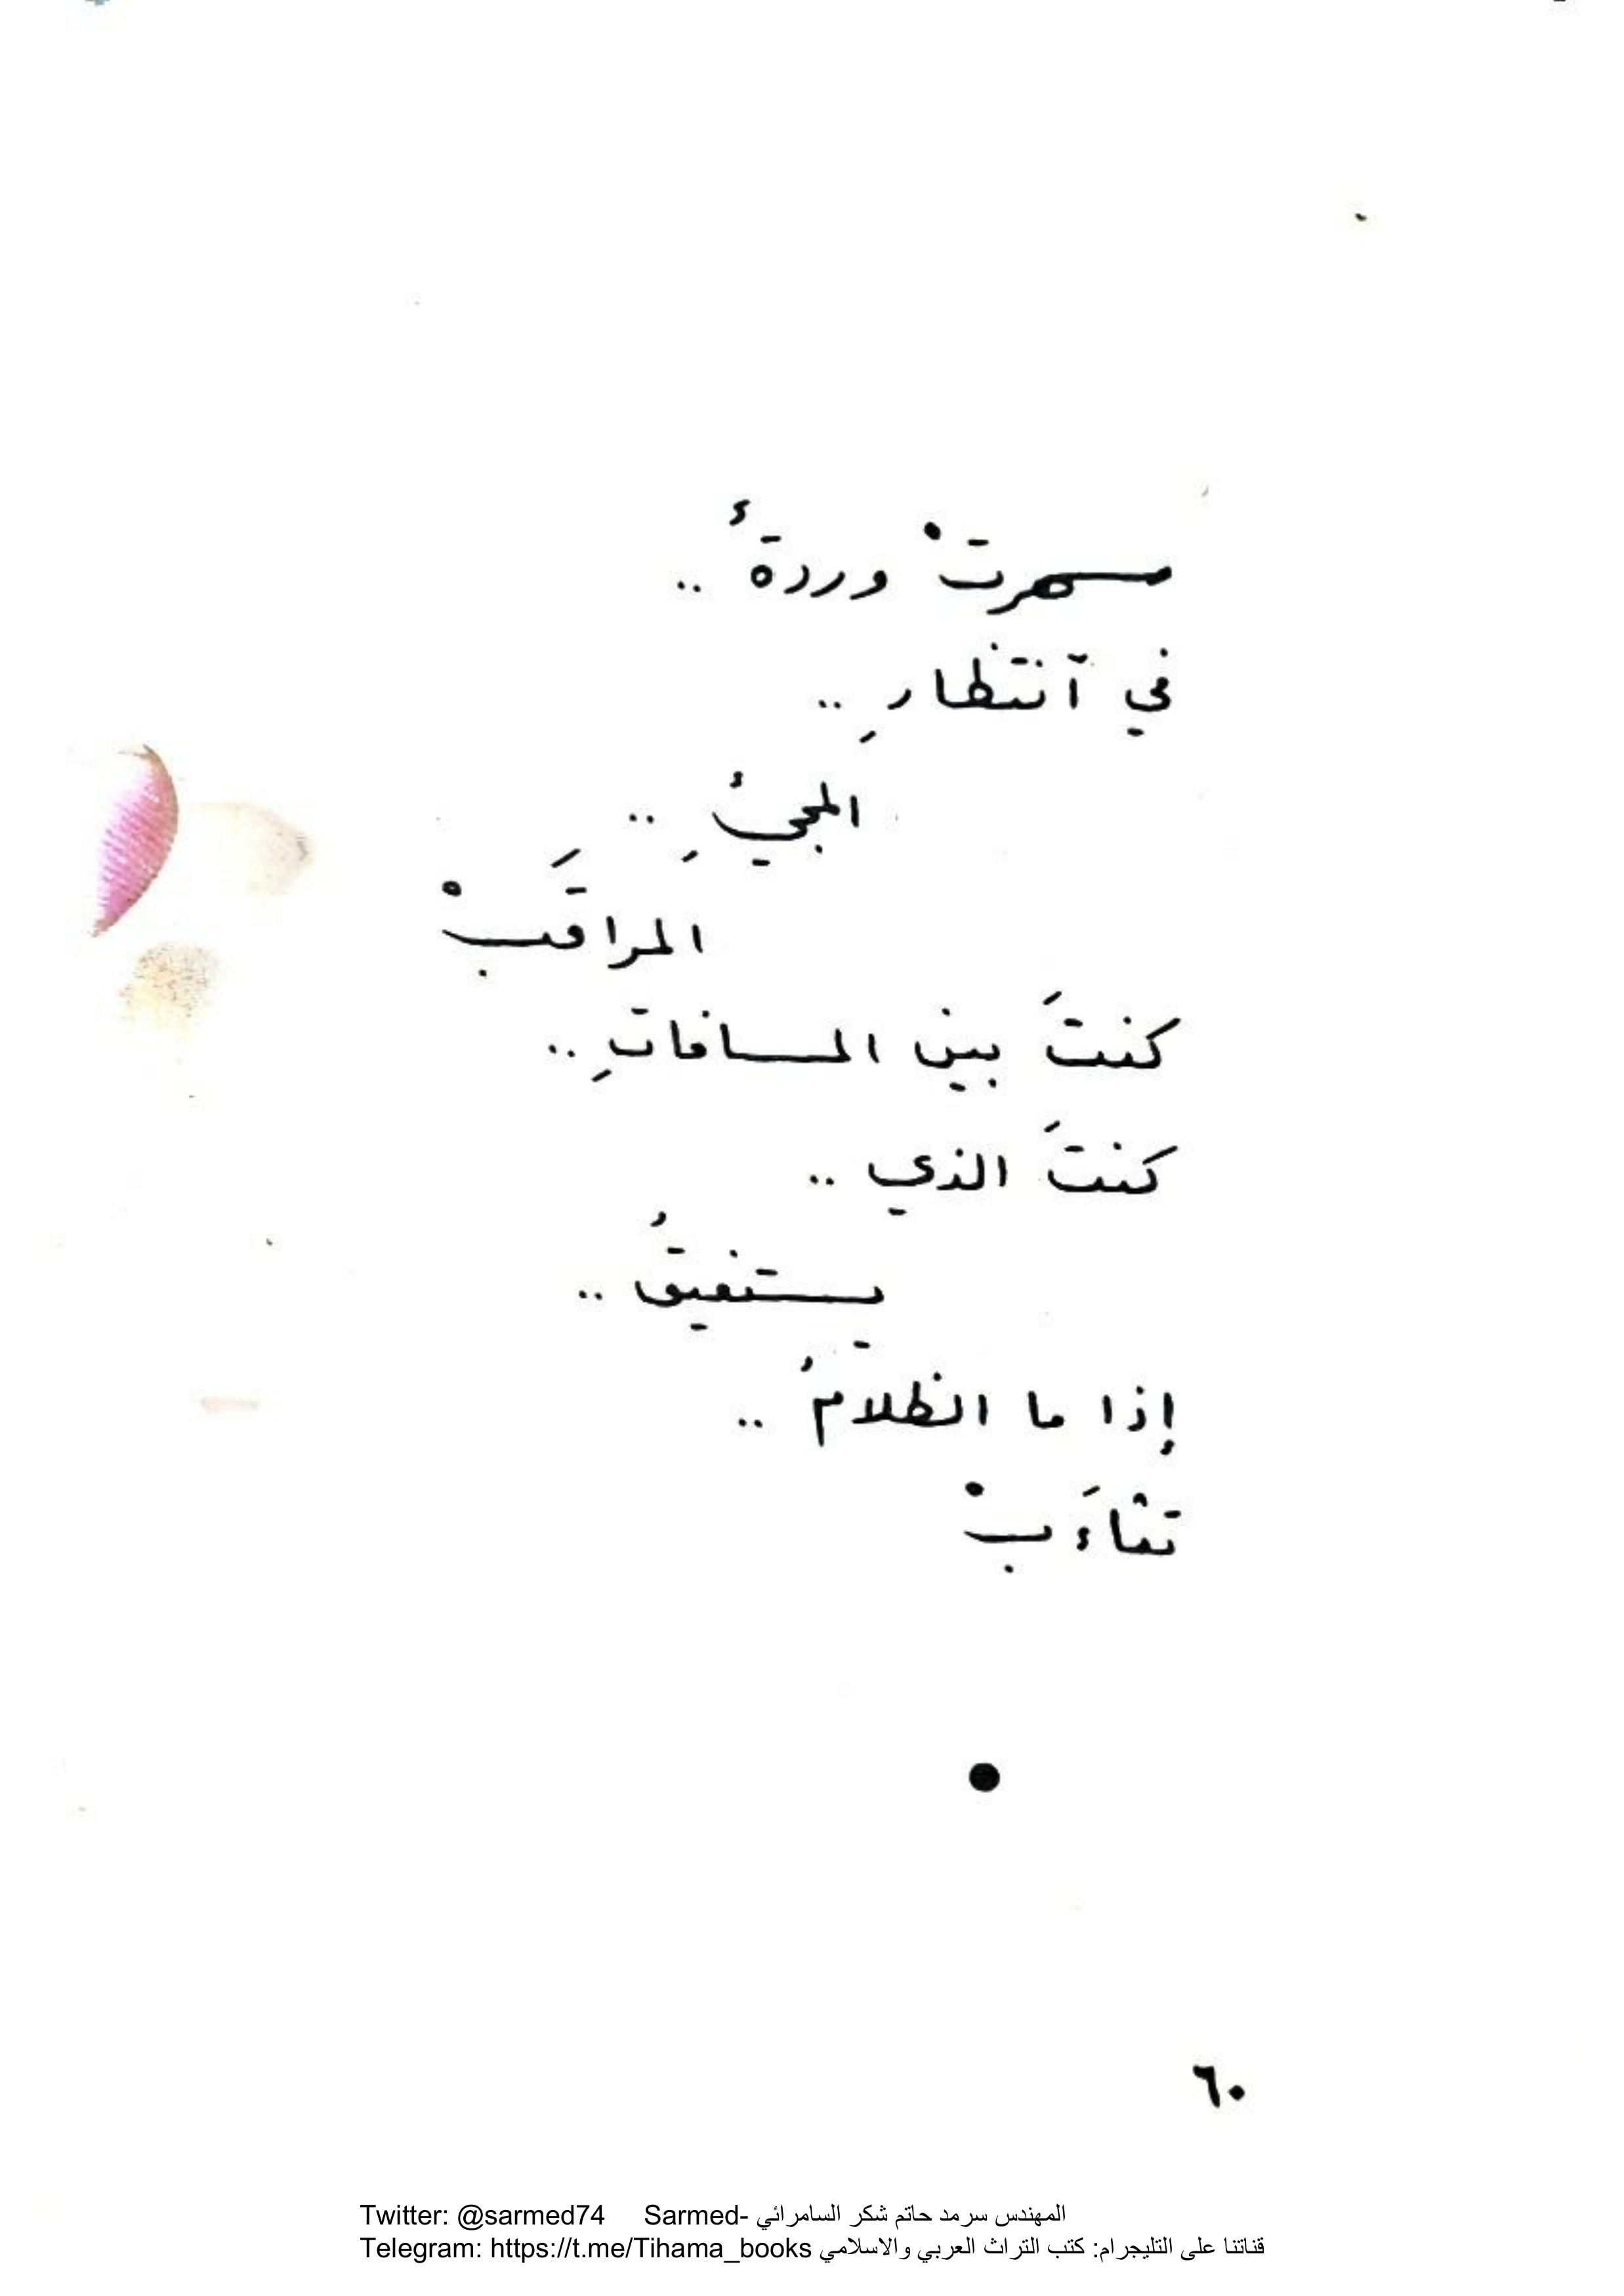 سهرتْ وردةٌ ..
في آنتظارِ ..
المجيُِ ..
المراقَبْ
كنتَ بين المسافاتِ ..
كنتَ الذي ..
يستفيقُ ..
إذا ما الظلامُ ..
تثاءَبْ
٦٠
Twitter: @sarmed74 Sarmed- المهندس سرمد حاتم شكر السامرائي
Telegram: https://t.me/Tihama_books قناتنا على التليجرام: كتب التراث العربي والاسلامي